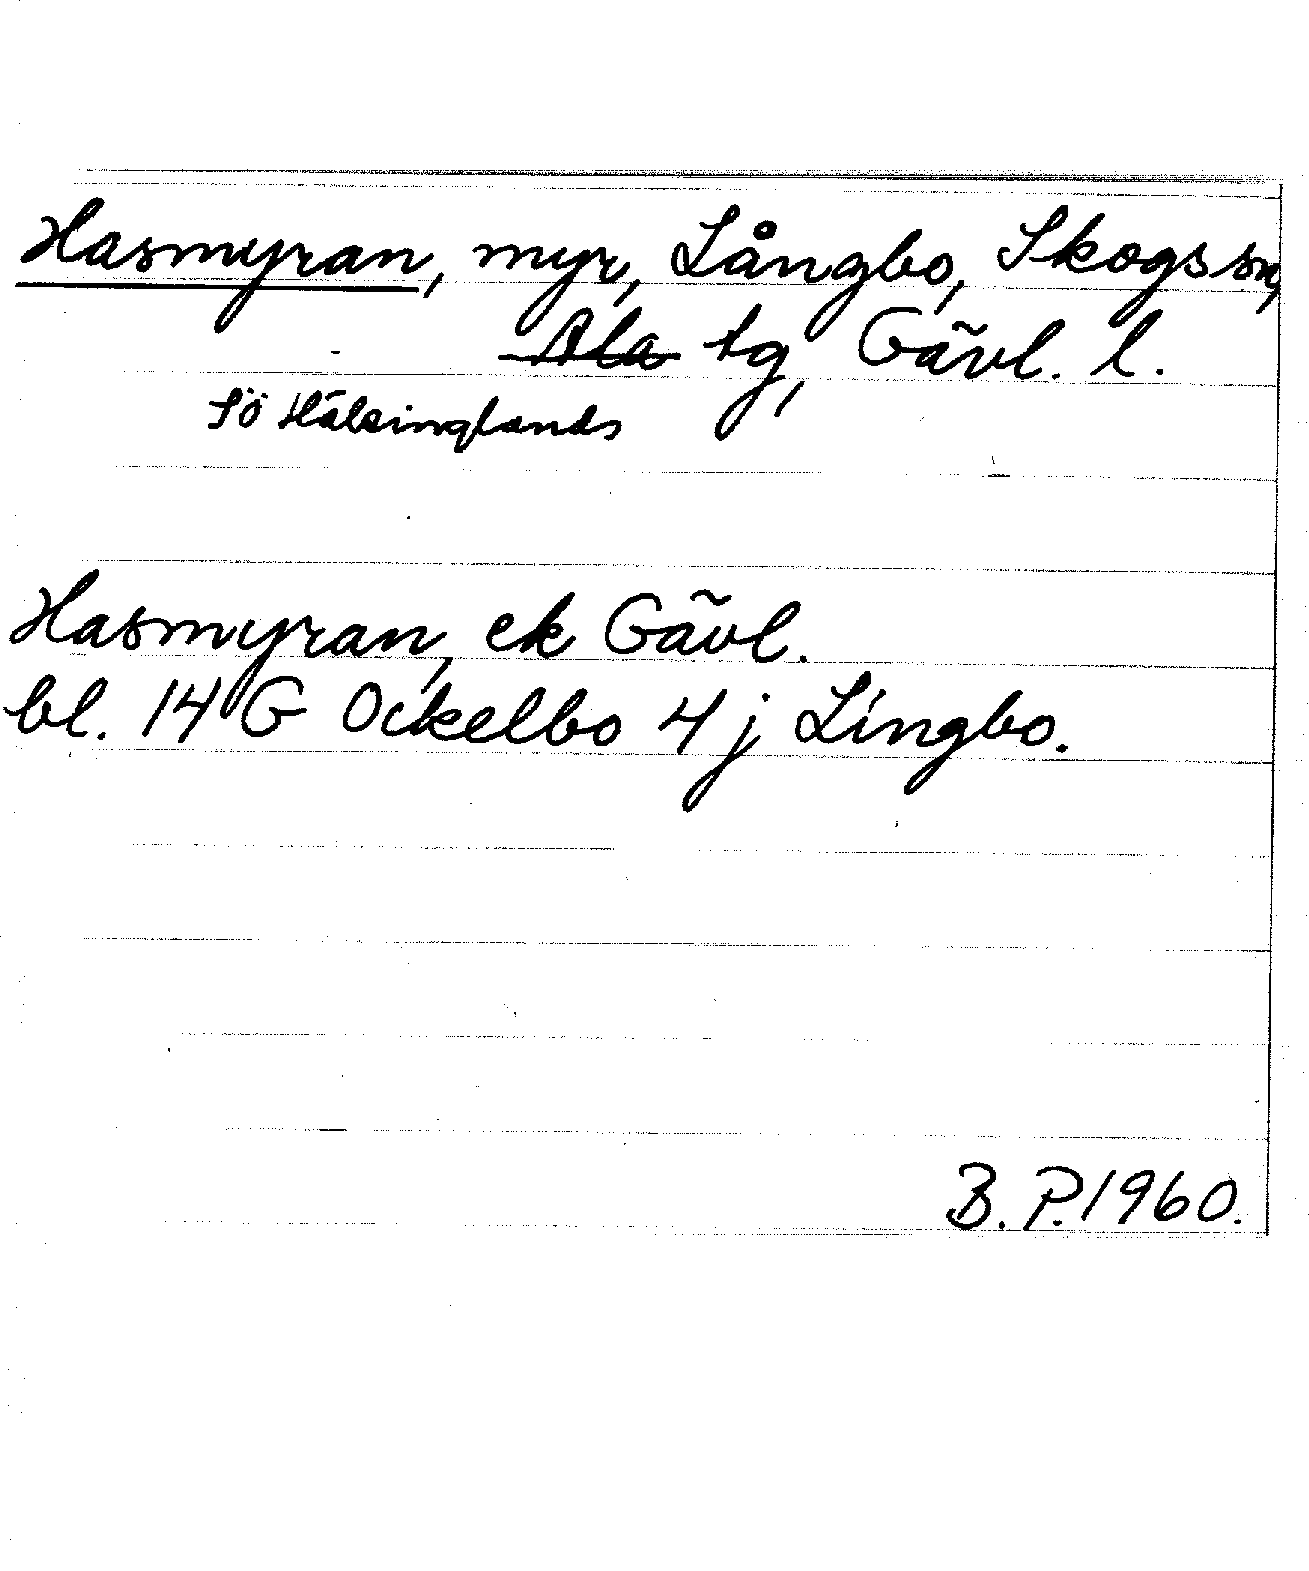 Hasmyran, myr, Långbo, Skogs sn,
Ala tg, Gävl. l.
Sö Hälsinglands
Hasmyran, ek Gävl.
bl. 14 G Ockelbo 4 j Lingbo.
B. P. 1960.